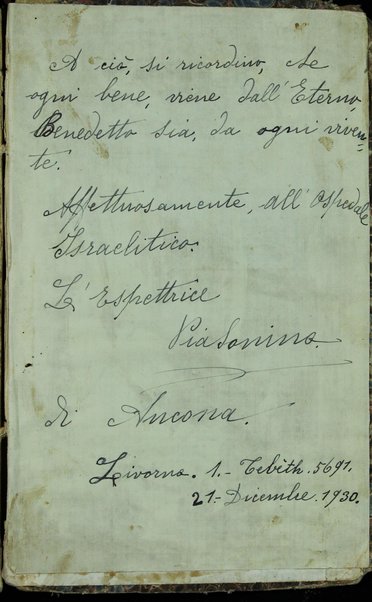 A ciò, si ricordino, che
ogni bene, viene dall'Eterno,
Benedetto sia, da ogni viven=
te.
Affettuosamente, all'Ospedale
Israelitico.
L'Espettrice
Pia Sonino.
di Ancona.
Livorno. 1.- Tebèth. 5691.
21.- Dicembre. 1930.